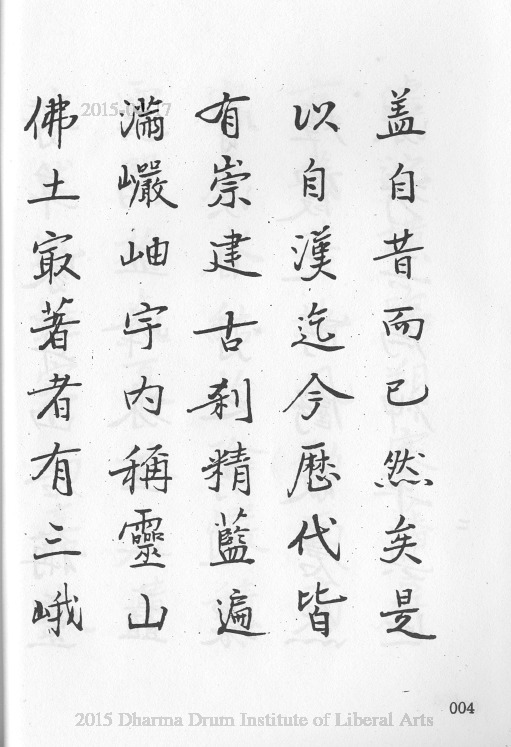 盖自昔而已然矣是
以自漢迄今歷代皆
有崇建古刹精藍遍
滿巖岫宇內稱靈山
佛土㝡著者有三峨
004
2015 Dharma Drum Institute of Liberal Arts